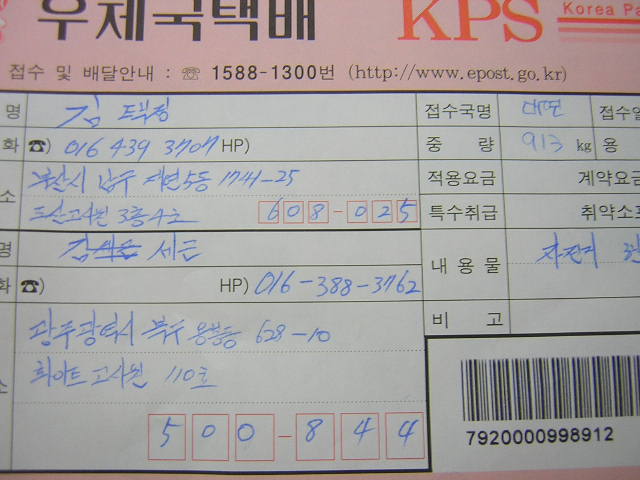 우체국택배 KPS Korea Pa
접수 및 배달안내 : ☏ 1588-1300번 (http://www.epost.go.kr)
명 김 접수국명 대연 접수일
화 ☎) 016 439 3707 HP) 중 량 913 kg 용
부산시 남구 대연5동 1741-25 적용요금 계약요금
소 고시원 3층 4호 608-025 특수취급 취약소포
명 세근 내용물 자전거
화 ☎) HP) 016-388-3762
비 고
광주광역시 북구 용봉동 628-10
소 화이트고시원 110호
500-844
7920000998912